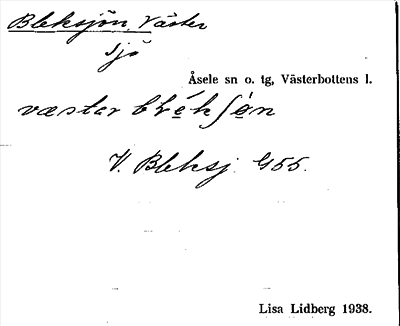 Bleksjön, Väster
sjö
Åsele sn o. tg, Västerbottens l.
væstər bḷék ʃǿn
V. Bleksj. G55.
Lisa Lidberg 1938.